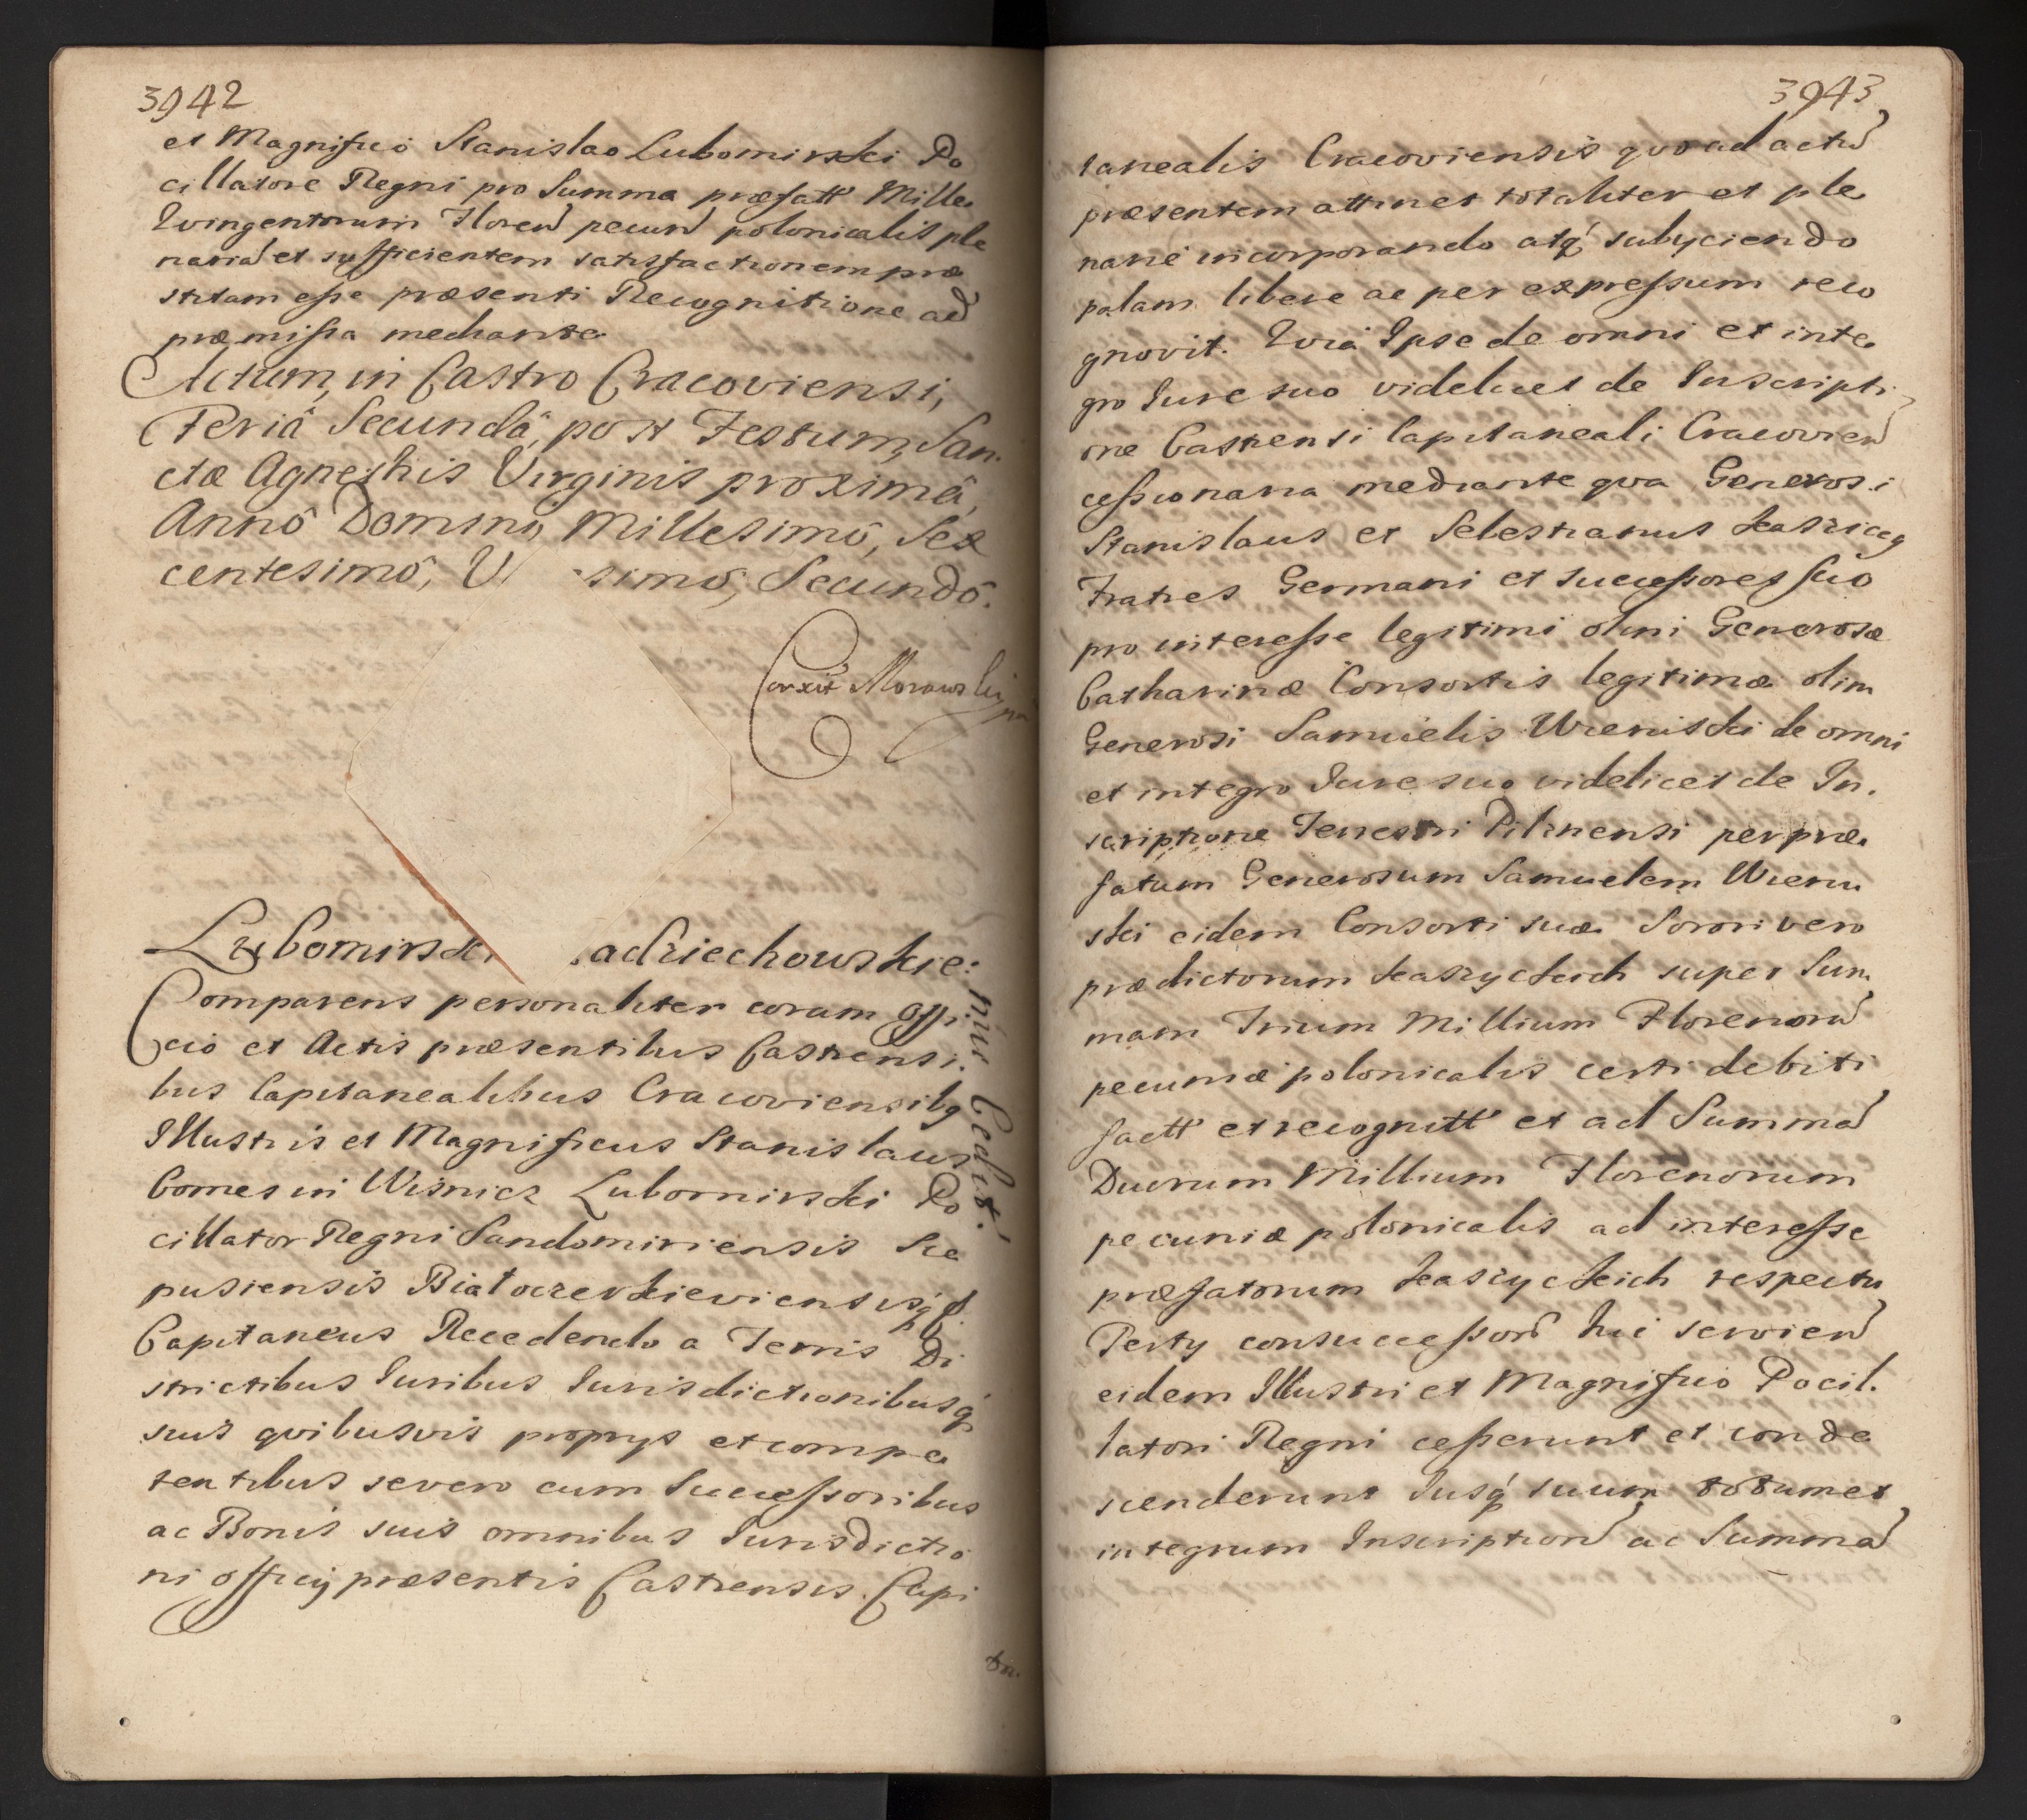 3942
et Magnifico Stanislao Lubomirski Po
cillatore Regni pro Summa præfatt Mille
Quingentorum Floren pecun polonicalis ple
naria et sufficientem satisfactionem præ
stitam esse præsenti Recognitione ad
præmissa mediante
Actum, in Castro Cracoviensi,
Feriâ Secundâ, post Festum, San
ctæ Agnethis Virginis proximâ,
Annô Domini, Millesimô, Sex
centesimô, V simô, Secundô.
Correxit Morawski mp
Lubomirski adziechowskie:
hui Cedit.
Comparens personaliter coram Offi
cio et Actis præsentibus Castrensi
bus Capitanealibus Cracoviensibq
Illustris et Magnificus Stanislaus
Comes in Wisnicz Lubomirski Po
cillator Regni Sandomiriensis Sce
pusiensis Białocerkieviensisq
Capitaneus Recedendo a Terris Di
strictibus Iuribus Iurisdictionibusq
suis quibusvis proprys et compe
tentibus severo cum Successoribus
ac Bonis suis omnibus Iurisdictio
ni officy præsentis Castrensis Capi
tan.
3943
tanealis Cracoviensis quoad actu
præsentem attinet totaliter et ple
narie incorporando atq subyciendo
palam libere ac per expressum reco
gnovit. Quia Ipse de omni et inte
gro Iure suo videlicet de Inscripti
one Castrensi Capitaneali Cracovien
cessionaria mediante qua Generosi
Stanislaus et Sebestianus
Fratres Germani et Successores suo
pro interesse legitimi olim Generosæ
Catharinæ Consortis legitimæ olim
Generosi Samuelis Wieruski de omni
et integro Iure suo videlicet de In
scriptione Terrestri Pilznensi per præ
fatum Generosum Samuelem Wieru
ski eidem Consorti suæ Sorori vero
prædictorum super Sum
mam Trium Millium Florenoru
pecuniæ polonicalis certi debiti
factt et recognitt et ad Summa
Duorum Millium Florenorum
pecuniæ polonicalis ad interesse
præfatorum respectu
consuccessor servien
eidem Illustri et Magnifico Pocil
latori Regni cesserunt et conde
scenderunt Iusq suum totum et
integrum Inscription ac Summa